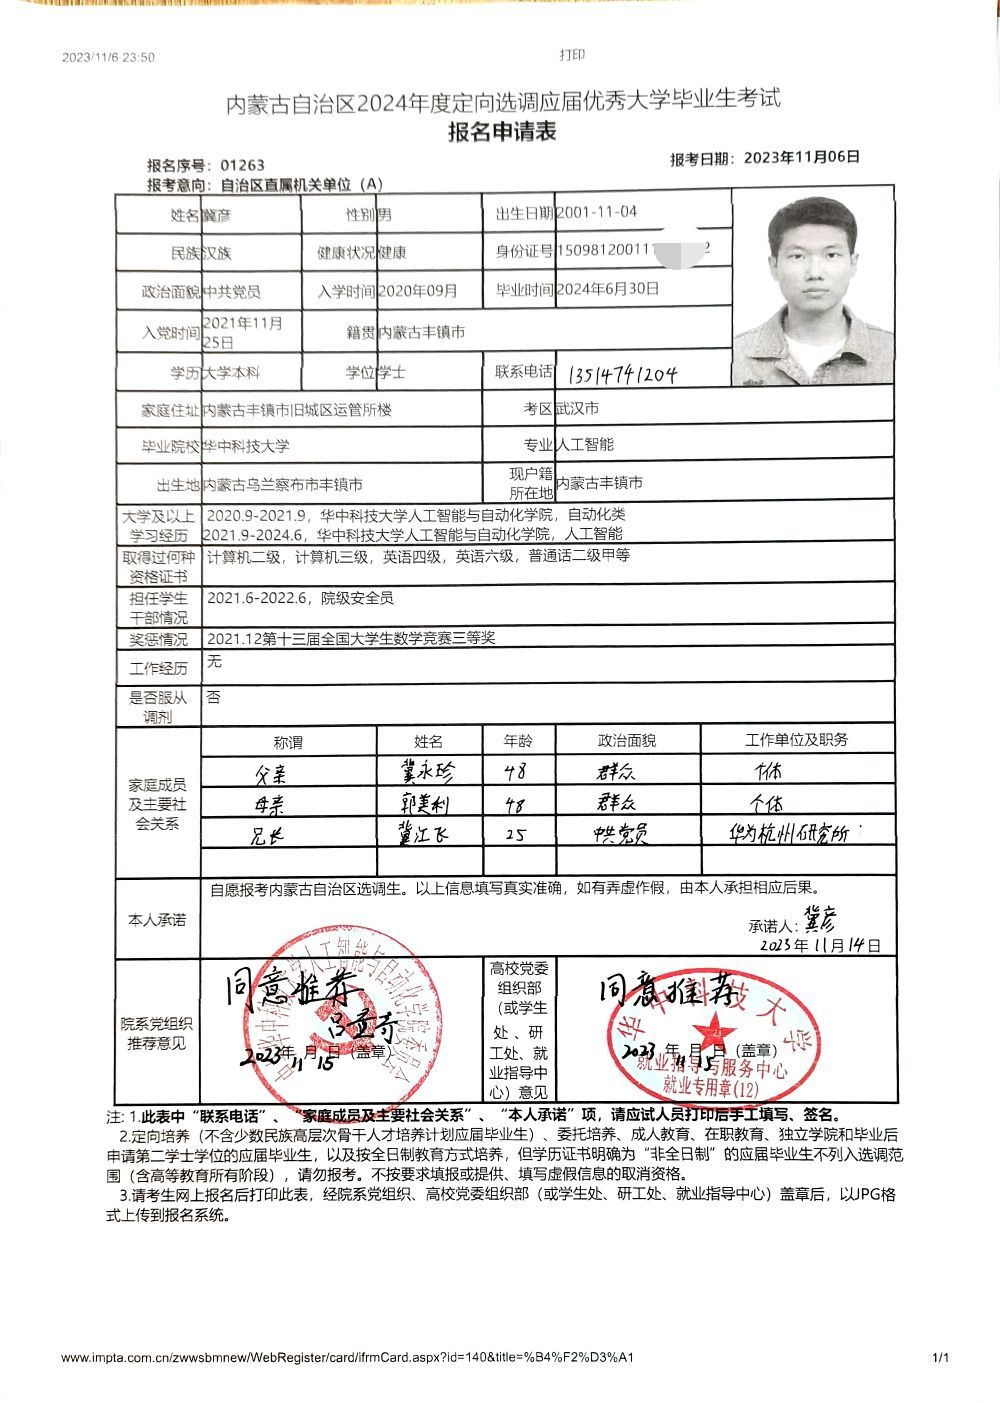 2023/11/6 23:50
打印
内蒙古自治区2024年度定向选调应届优秀大学毕业生考试
报名申请表
报名序号：01263
报考日期：2023年11月06日
报考意向：自治区直属机关单位（A）
姓名 冀彦 性别 男 出生日期 2001-11-04
民族 汉族 健康状况 健康 身份证号 15098120011 2
政治面貌 中共党员 入学时间 2020年09月 毕业时间 2024年6月30日
入党时间 2021年11月25日 籍贯 内蒙古丰镇市
学历 大学本科 学位 学士 联系电话 13514741204
家庭住址 内蒙古丰镇市旧城区运管所楼 考区 武汉市
毕业院校 华中科技大学 专业 人工智能
出生地 内蒙古乌兰察布市丰镇市 现户籍所在地 内蒙古丰镇市
大学及以上学习经历
2020.9-2021.9，华中科技大学人工智能与自动化学院，自动化类
2021.9-2024.6，华中科技大学人工智能与自动化学院，人工智能
取得过何种资格证书 计算机二级，计算机三级，英语四级，英语六级，普通话二级甲等
担任学生干部情况 2021.6-2022.6，院级安全员
奖惩情况 2021.12第十三届全国大学生数学竞赛三等奖
工作经历 无
是否服从调剂 否
家庭成员及主要社会关系
称谓 姓名 年龄 政治面貌 工作单位及职务
父亲 冀永珍 48 群众 个体
母亲 郭美利 48 群众 个体
兄长 冀江飞 25 中共党员 华为杭州研究所
本人承诺
自愿报考内蒙古自治区选调生。以上信息填写真实准确，如有弄虚作假，由本人承担相应后果。
承诺人：冀彦
2023年11月14日
院系党组织推荐意见
同意推荐
2023年11月15日（盖章）
高校党委组织部（或学生处、研工处、就业指导中心）意见
同意推荐
华中科技大学
2023年11月15日（盖章）
就业指导与服务中心
就业专用章(12)
注：1.此表中“联系电话”、“家庭成员及主要社会关系”、“本人承诺”项，请应试人员打印后手工填写、签名。
2.定向培养（不含少数民族高层次骨干人才培养计划应届毕业生）、委托培养、成人教育、在职教育、独立学院和毕业后
申请第二学士学位的应届毕业生，以及按全日制教育方式培养，但学历证书明确为“非全日制”的应届毕业生不列入选调范
围（含高等教育所有阶段），请勿报考。不按要求填报或提供、填写虚假信息的取消资格。
3.请考生网上报名后打印此表，经院系党组织、高校党委组织部（或学生处、研工处、就业指导中心）盖章后，以JPG格
式上传到报名系统。
www.impta.com.cn/zwwsbmnew/WebRegister/card/ifrmCard.aspx?id=140&title=%B4%F2%D3%A1
1/1